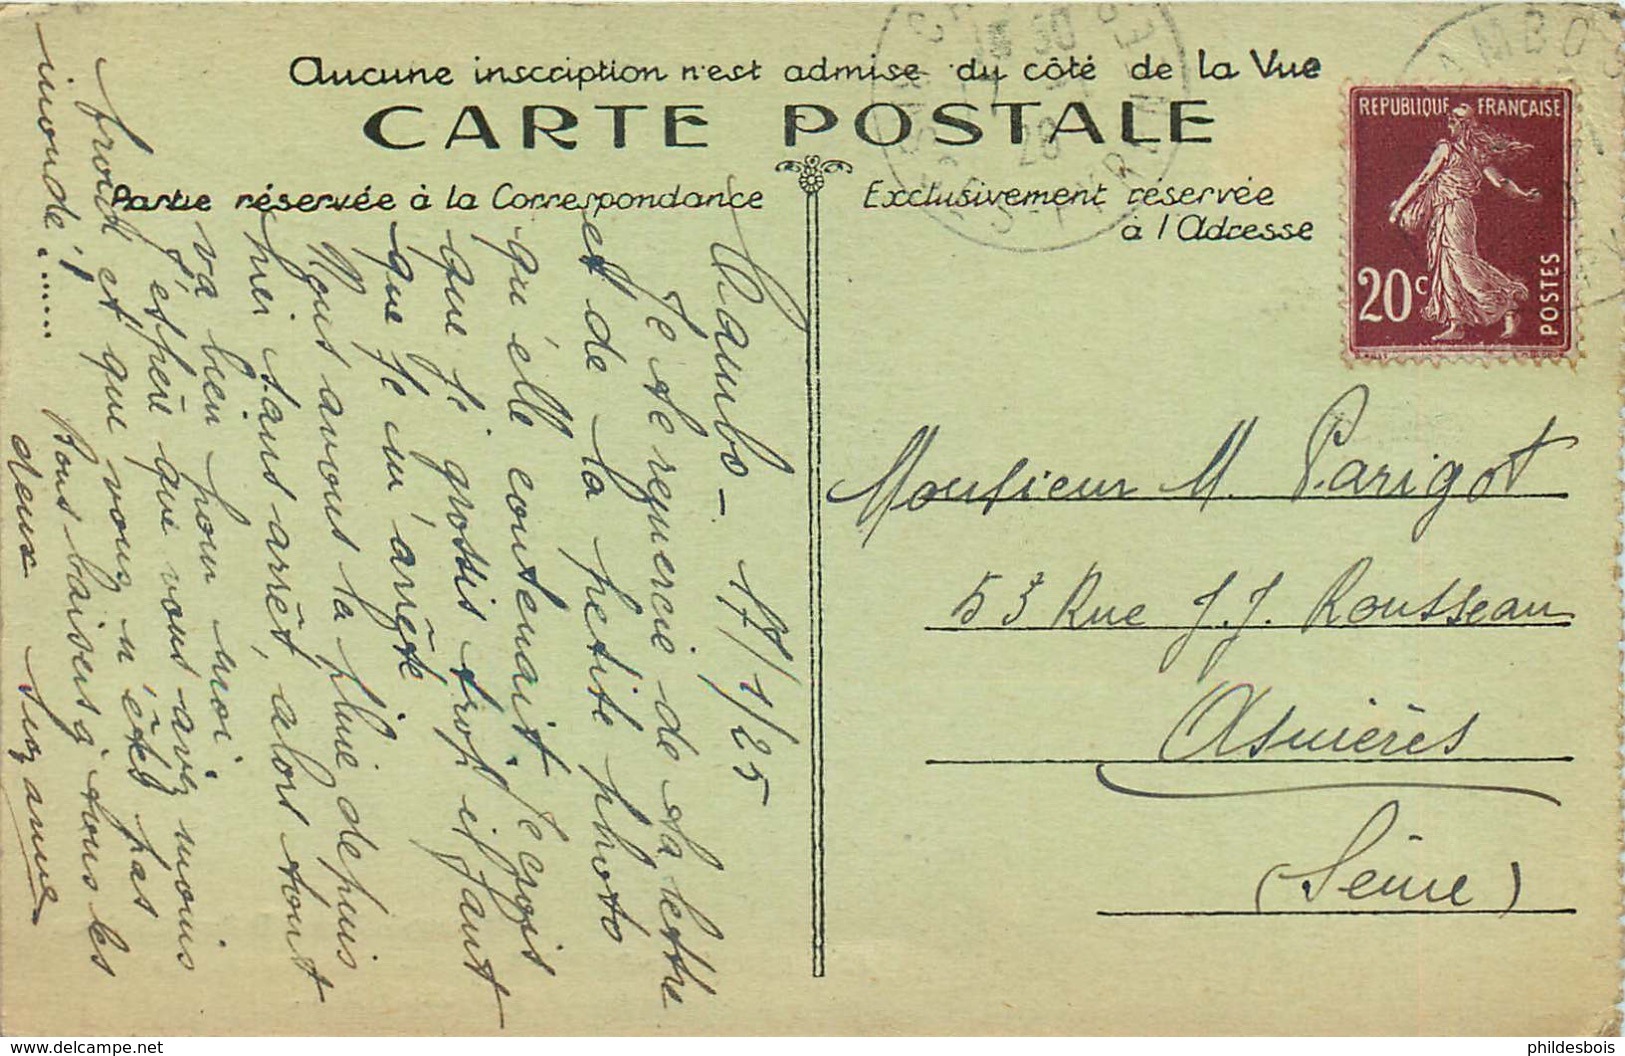 Aucune inscription n'est admise du côté de la Vue
CARTE POSTALE
Partie réservée à la Correspondance
Exclusivement réservée
à l'Adresse
REPUBLIQUE FRANÇAISE
20c
POSTES
Cambo - 17/1/25
Je te remercie de ta lettre
et de la petite photo
qu'elle contenait. Je crois
que je grossis trop il faut
que je m'arrête
Nous avons la pluie depuis
hier sans arrêt, alors tout
va bien pour moi.
J'espère que vous avez moins
froid et que vous n'êtes pas
inondé !.....
Bons baisers à tous les
deux Suzanne
Monsieur M. Parigot
53 Rue J.J. Rousseau
Asnières
(Seine)
delcampe.net
phildesbois